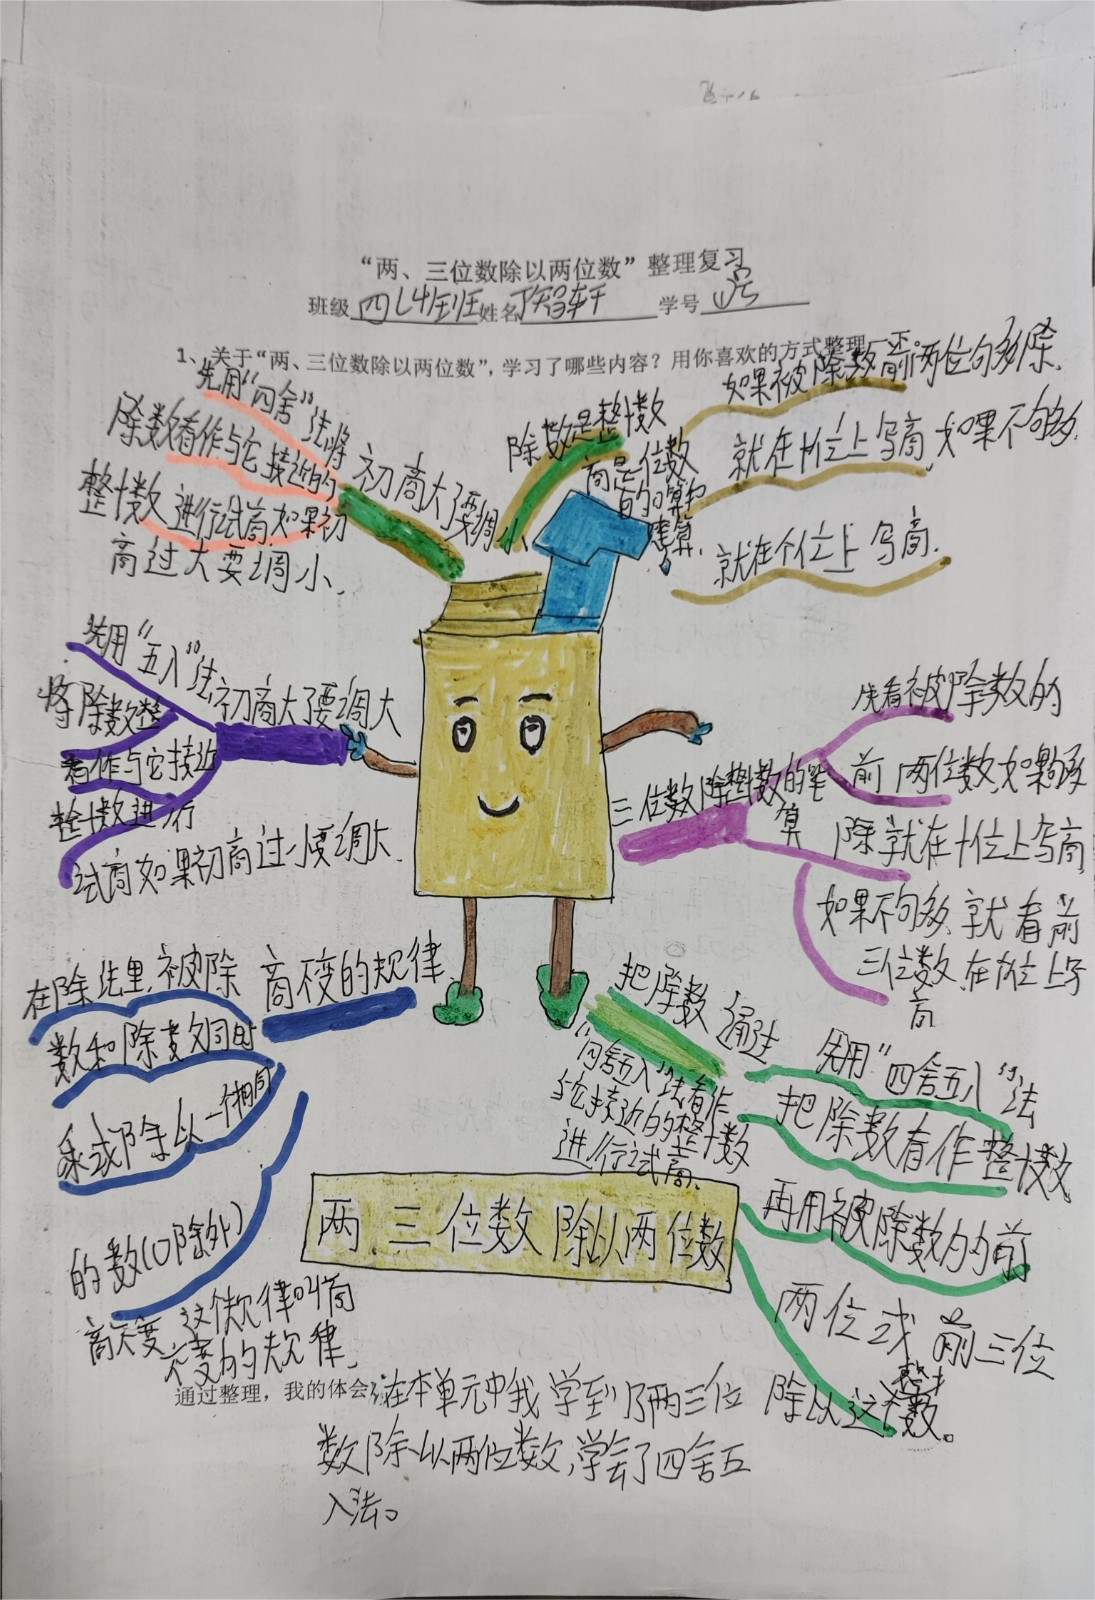 “两、三位数除以两位数”整理复习
班级 四(4)班 姓名 学号
1、关于“两、三位数除以两位数”，学习了哪些内容？用你喜欢的方式整理
先用“四舍”法将
除数看作与它接近的
整十数进行试商如果初
商过大要调小.
初商大了要调小
除数是整十数
商是一位数
的口算和
笔算.
如果被除数前两位够除.
就在十位上写商,如果不够.
就在个位上写商.
先用“五入”法
将除数整
看作与它接近
整十数进行
试商如果初商过小要调大.
初商大了要调大
三位数除整十数的笔
算
先看被除数的
前两位数,如果够
除就在十位上写商
如果不够,就看前
三位数.在个位上写
商
在除法里.被除
数和除数同时
乘或除以一个相同
的数(0除外)
商不变 这个规律叫商
不变的规律.
商不变的规律
把除数通过
“四舍五入”法看作
与它接近的整十数
进行试商.
先用“四舍五入”法
把除数看作整十数
再用被除数的前
两位或前三位
除以这个整十数。
两 三位数 除以两位数
通过整理，我的体会：在本单元中我学到了两三位
数除以两位数,学会了四舍五
入法。